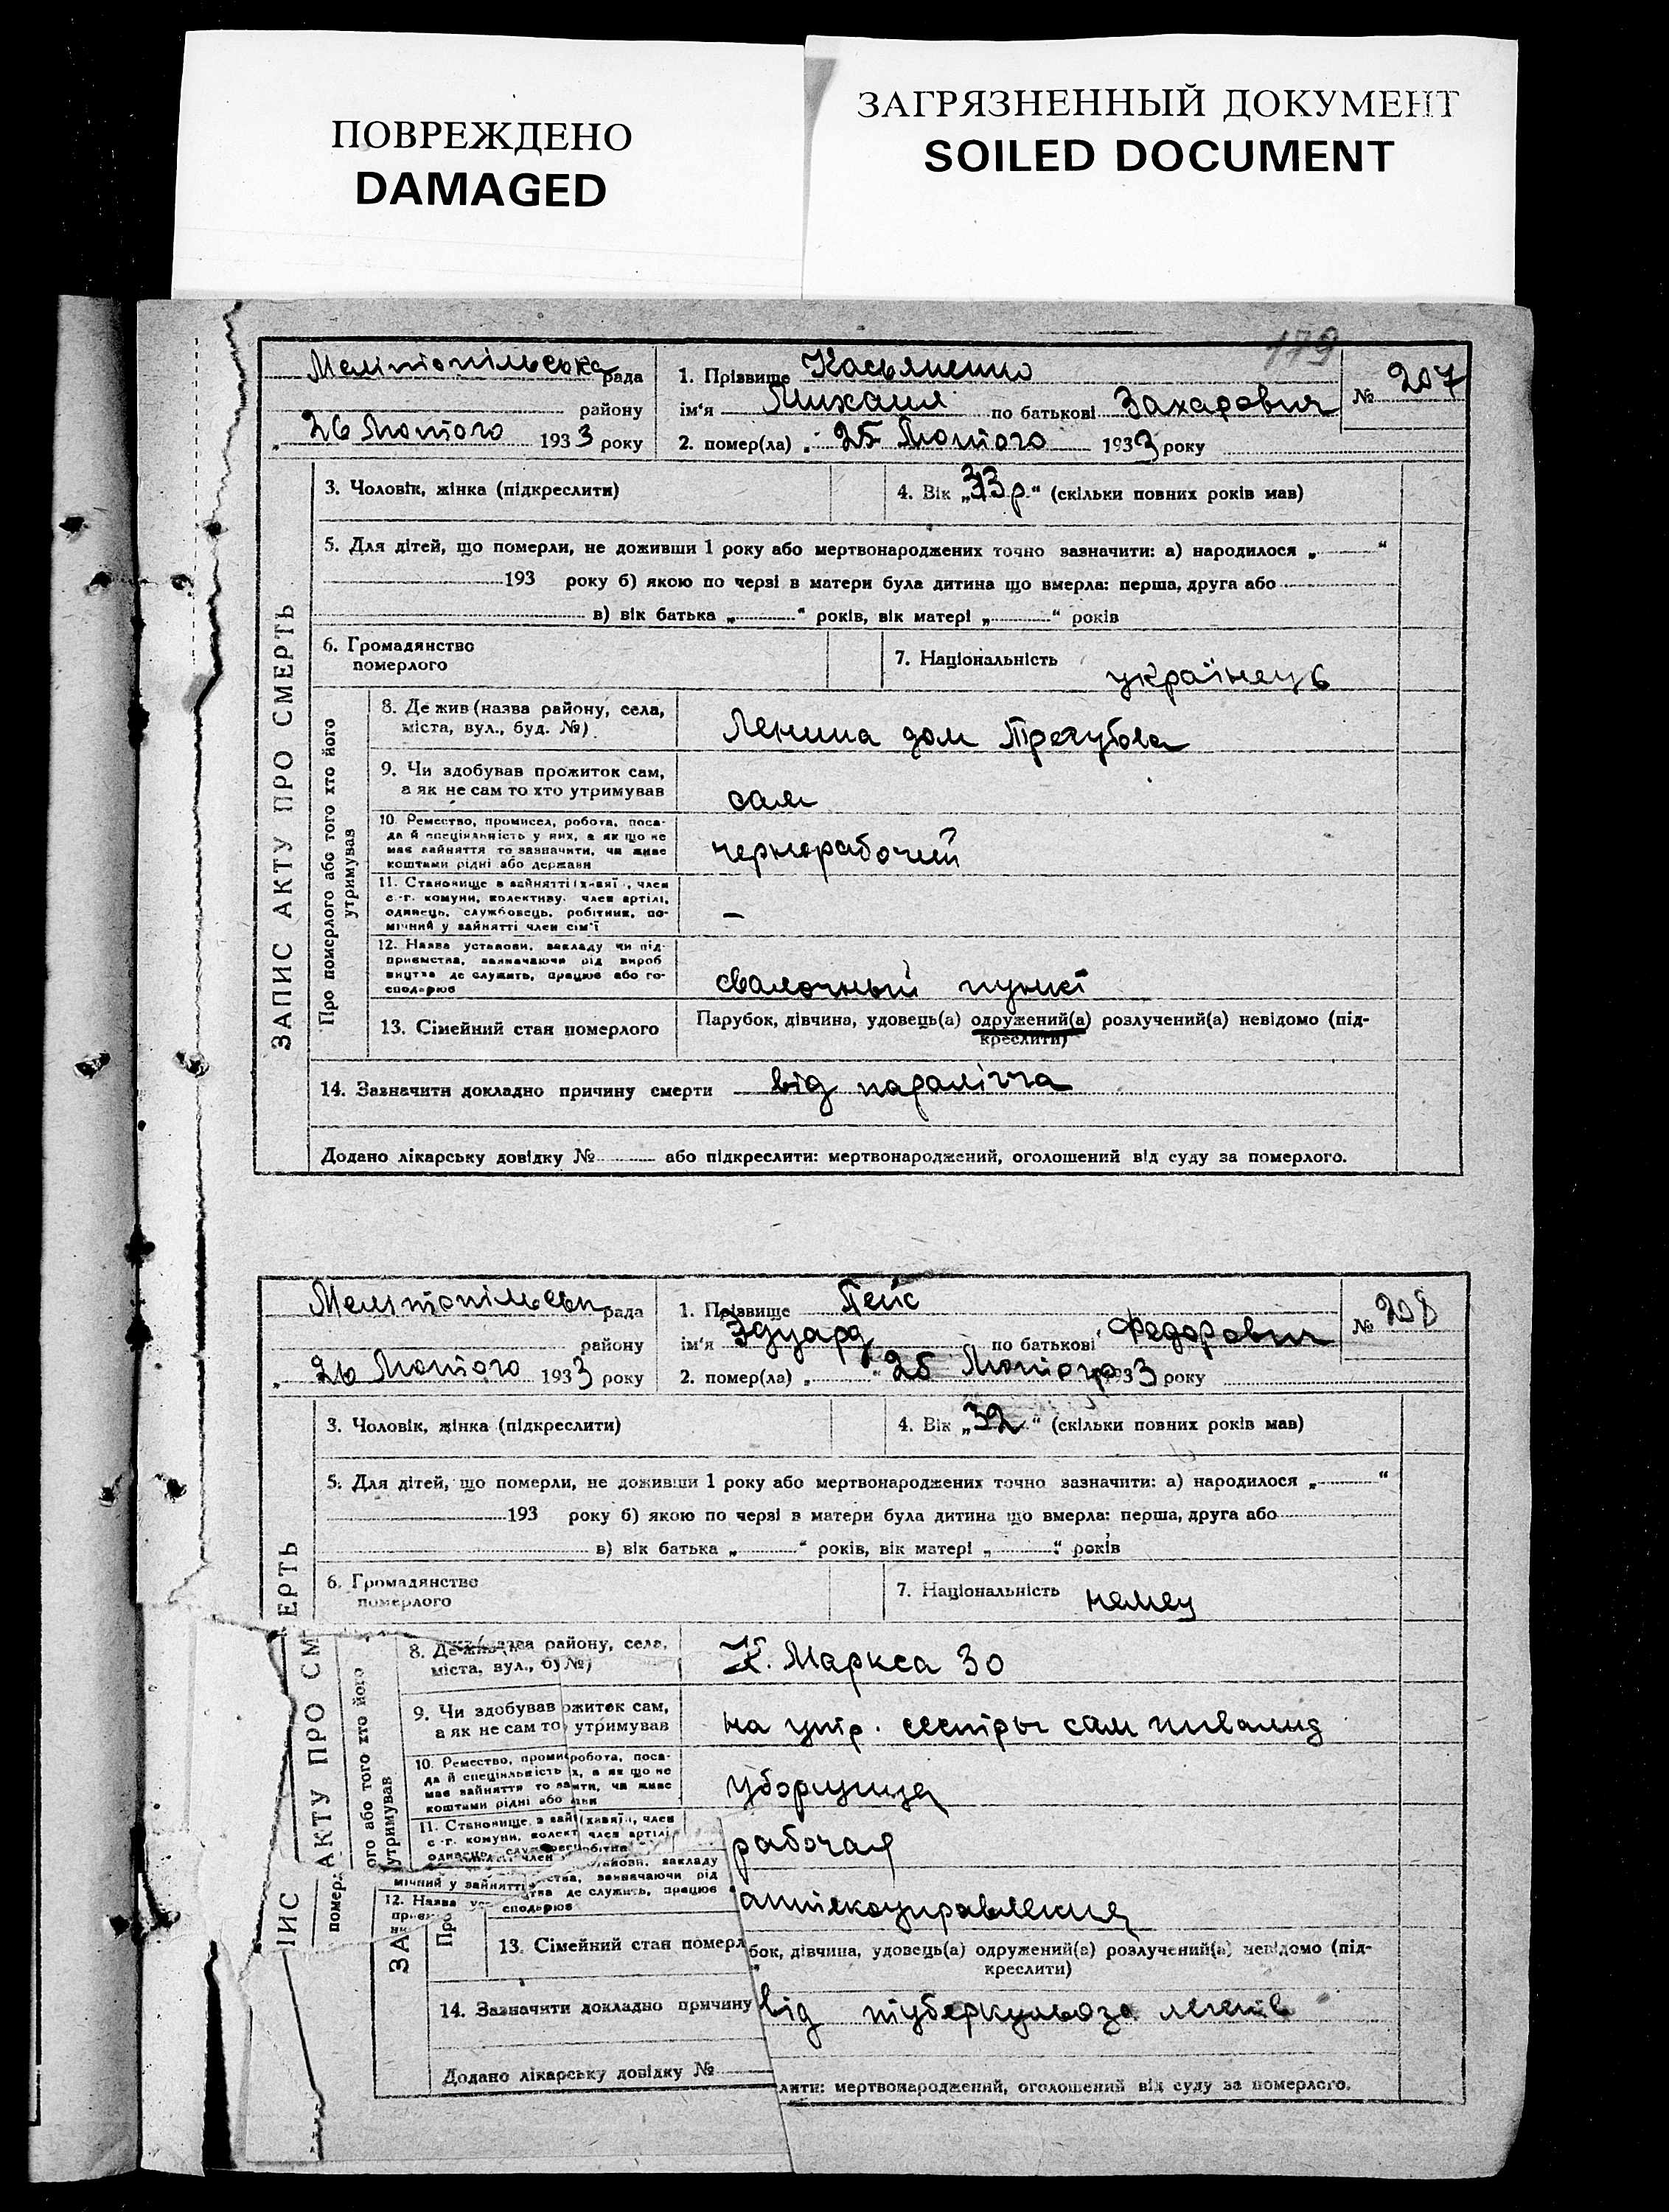 ПОВРЕЖДЕНО
DAMAGED
ЗАГРЯЗНЕННЫЙ ДОКУМЕНТ
SOILED DOCUMENT
179
Мелітопільська рада
району
„ 26 Лютого 1933 року
1. Прізвище Касьяненко
ім'я Михаил по батькові Захарович
2. помер(ла) „ 25 Лютого 1933 року
№ 207
ЗАПИС АКТУ ПРО СМЕРТЬ
3. Чоловік, жінка (підкреслити)
4. Вік „33 р.“ (скільки повних років мав)
5. Для дітей, що померли, не доживши 1 року або мертвонароджених точно зазначити: а) народилося „ “
193 року б) якою по черзі в матери була дитина що вмерла: перша, друга або
в) вік батька „ “ років, вік матері „ “ років
6. Громадянство
померлого
7. Національність українець
Про померлого або того хто його
утримував
8. Де жив (назва району, села,
міста, вул., буд. №)
Ленина дом Трегубова
9. Чи здобував прожиток сам,
а як не сам то хто утримував
сам
10. Ремество, промисел, робота, поса-
да й спеціяльність у них, а як що не
має зайняття то зазначити, чи живе
коштами рідні або держави
чернорабочий
11. Становище в зайнятті (хазяї, член
с.-г. комуни, колективу, член артілі,
одинець, службовець, робітник, по-
мічний у зайнятті член сім'ї
–
12. Назва установи, закладу чи під-
приємства, зазначаючи рід вироб
ництва де служить, працює або го-
сподарює
свалочный пункт
13. Сімейний стан померлого
Парубок, дівчина, удовець(а) одружений(а) розлучений(а) невідомо (під-
креслити)
14. Зазначити докладно причину смерти від паралічча
Додано лікарську довідку № або підкреслити: мертвонароджений, оголошений від суду за померлого.
Мелітопільськ рада
району
„ 26 Лютого 1933 року
1. Прізвище Гейс
ім'я Эдуард по батькові Федорович
2. помер(ла) „ “ 25 Лютого 1933 року
№ 208
3. Чоловік, жінка (підкреслити)
4. Вік „32“ (скільки повних років мав)
5. Для дітей, що померли, не доживши 1 року або мертвонароджених точно зазначити: а) народилося „ “
193 року б) якою по черзі в матери була дитина що вмерла: перша, друга або
в) вік батька „ “ років, вік матері „ “ років
ЕРТЬ
6. Громадянство
померлого
7. Національність немец
ИС АКТУ ПРО СМ
ого або того хто його
утримував
8. Де жив (назва району, села,
міста, вул., бу №)
К. Маркса 30
9. Чи здобував ожиток сам,
а як не сам то утримував
на утр. сестры сам инвалид
10. Ремество, проми робота, поса-
да й спеціяльність х, а як що не
має зайняття то за ити, чи живе
коштами рідні або
уборщица
11. Становище в зай (хазяї, член
с.-г. комуни, колект член артілі
рабочая
мічний у зайнятті
12. Назва закладу
зазначаючи рід
де служить, працює
сподарює
аптекоуправления
ЗА
Пр
помер
13. Сімейний стан померл
бок, дівчина, удовець(а) одружений(а) розлучений(а) невідомо (під-
креслити)
14. Зазначити докладно причину від туберкульоза легенів
Додано лікарську довідку №
лити: мертвонароджений, оголошений від суду за померлого.